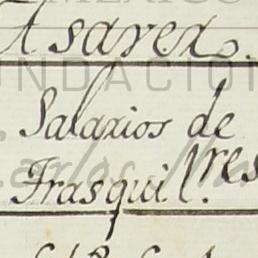 Asarex.
Salarios de
Trasquil.res